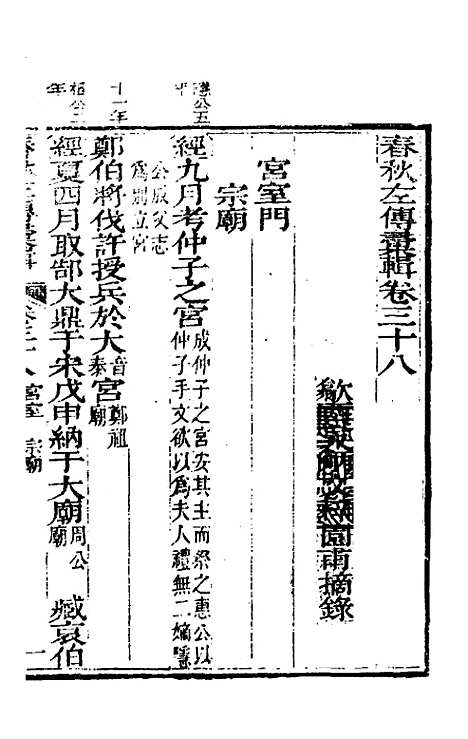 春秋左傳彙輯卷三十八
園甫摘錄
宮室門
宗廟
隱公五年
經九月考仲子之宮成仲子之宮安其主而祭之惠公以仲子手文欲以為夫人禮無二嫡隱
公成父志為別立宮
十一年
鄭伯將伐許授兵於大音泰宮鄭祖廟
桓公二年
經夏四月取郜大鼎于宋戊申納于大廟周公廟 臧哀伯
宮室 宗廟 一